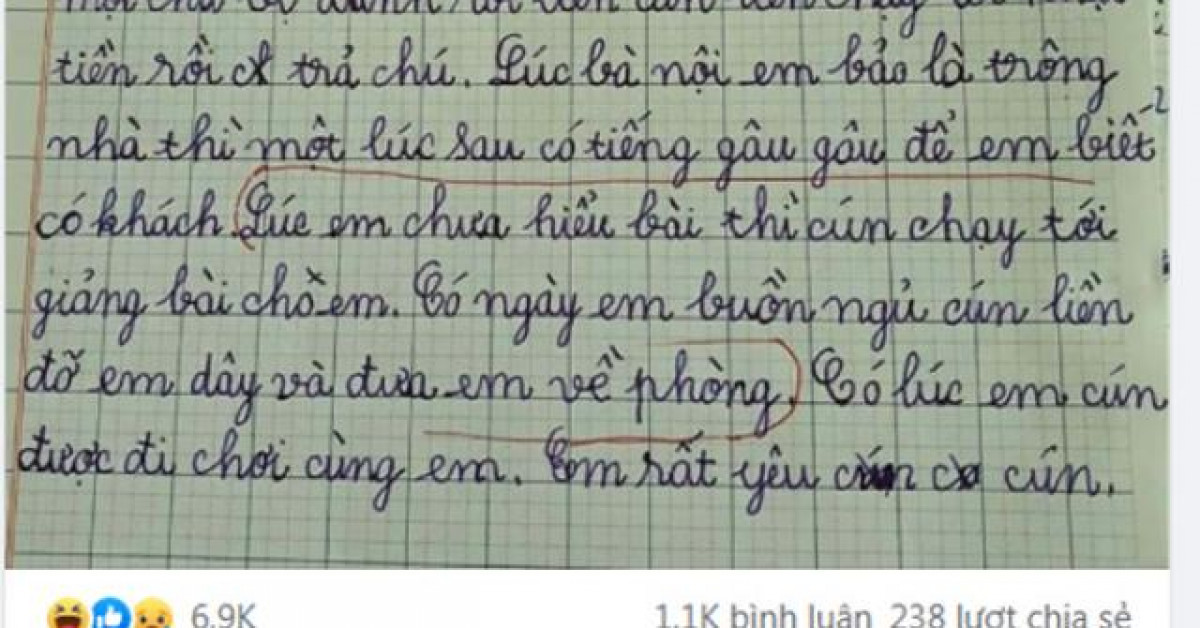 tiền rồi trả chú. Lúc bà nội em bảo là trông
nhà thì một lúc sau có tiếng gâu gâu để em biết
có khách. Lúc em chưa hiểu bài thì cún chạy tới
giảng bài cho em. Có ngày em buồn ngủ cún liền
đỡ em dây và đưa em về phòng. Có lúc em cún
được đi chơi cùng em. Em rất yêu cún.
6,9K
1,1K bình luận 238 lượt chia sẻ